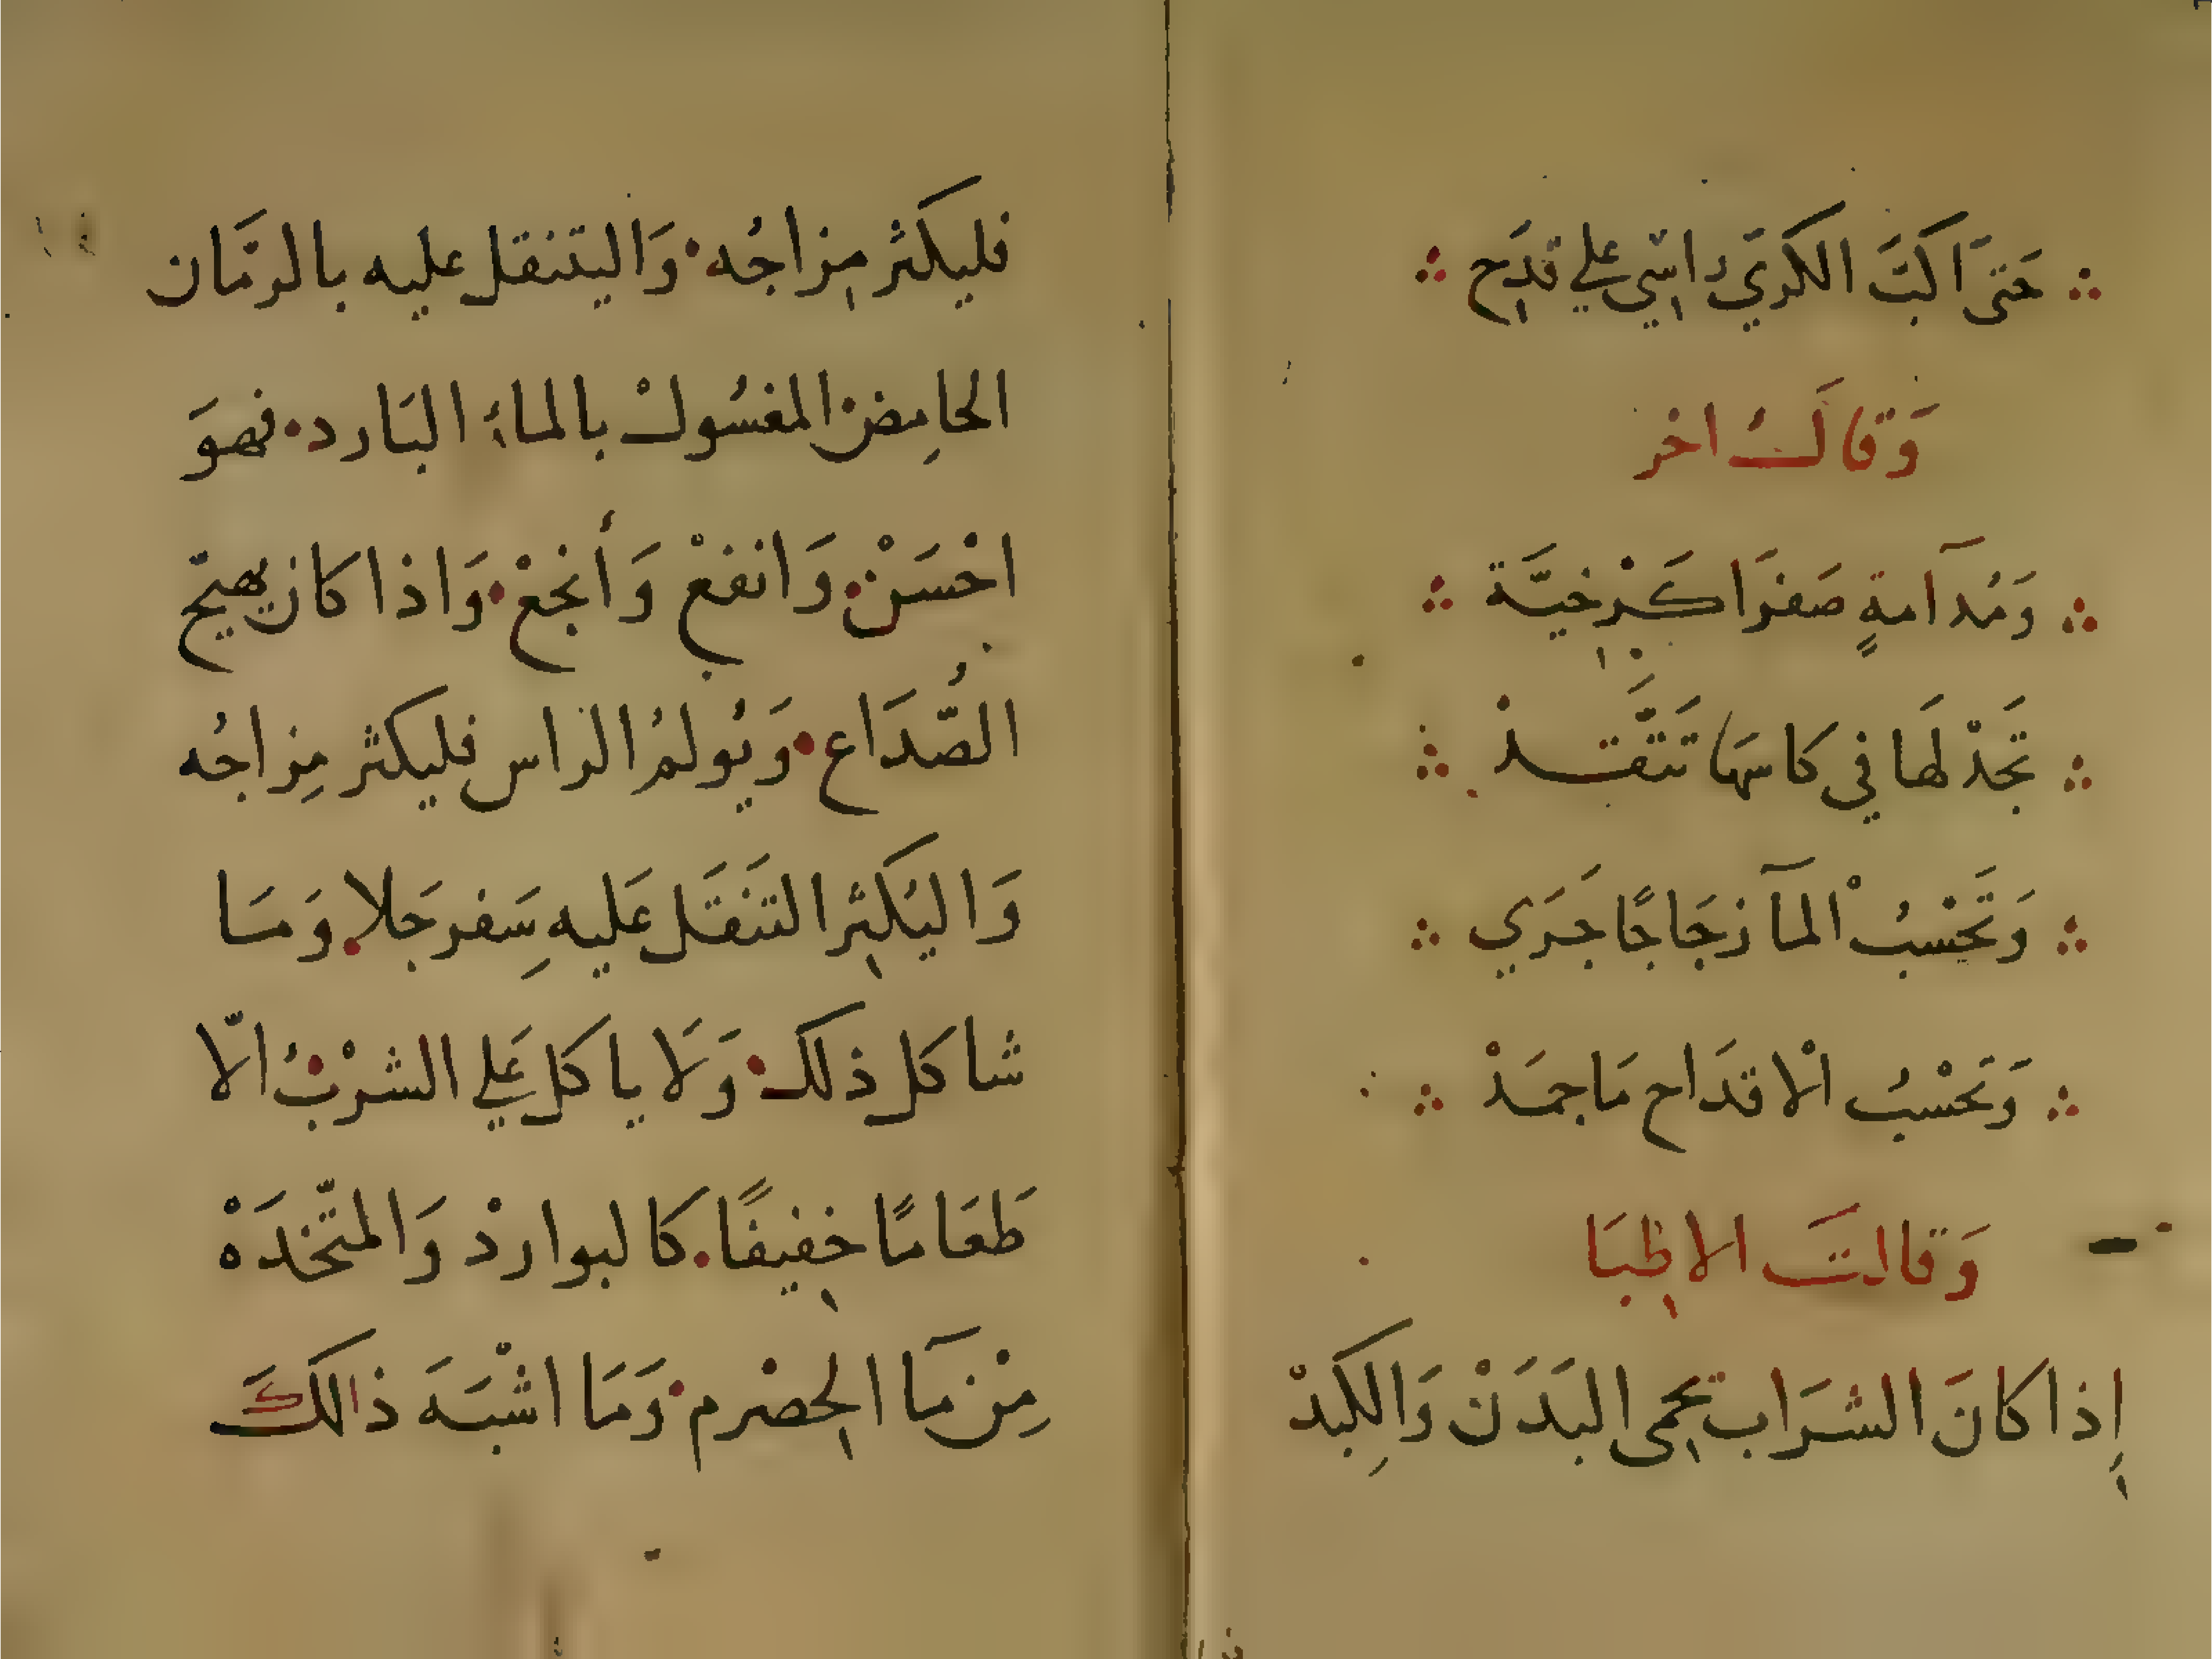 حَتىَ اَكَبَّ الكَرَي رَاسِي علي قَدَحِ
وَقالَ اخر
وَمُدآمةٍ صَفرَا كَرْخيَّة
تَجدْ لهَا في كاسهَا تَتَّقَدْ
وَتَحْسبُ الْمآ زجَاجًا جَرَي
وَتَحْسبُ الْاقدَاح مَا جمَدْ
وَقالتَ الاطِبَا
إِذا كانَ الشرَاب يحمى البَدَنْ وَالكِبدْ
فليكثر مِزاجُه وَاليتنقل عليه بالرمَّان
الحامِض المغسُولْ بالماءِ البَارد فهوَ
احْسَنْ وَانفعْ وَأنجعْ وَاذا كان يهيّج
الصُّدَاع وَيُولمُ الراس فليكثر مِزاجُه
وَاليُكثِر التنَقَل عَليه سِفرجَلا وَمَا
شاكل ذلك وَلَا ياكل عَلي الشرْبُ الّا
طَعَامًا خفِيفًا كالبوارِدْ وَالمتّخدَهْ
مِن مَآ الحِصْرم وَمَا اشْبَهَ ذالكَ